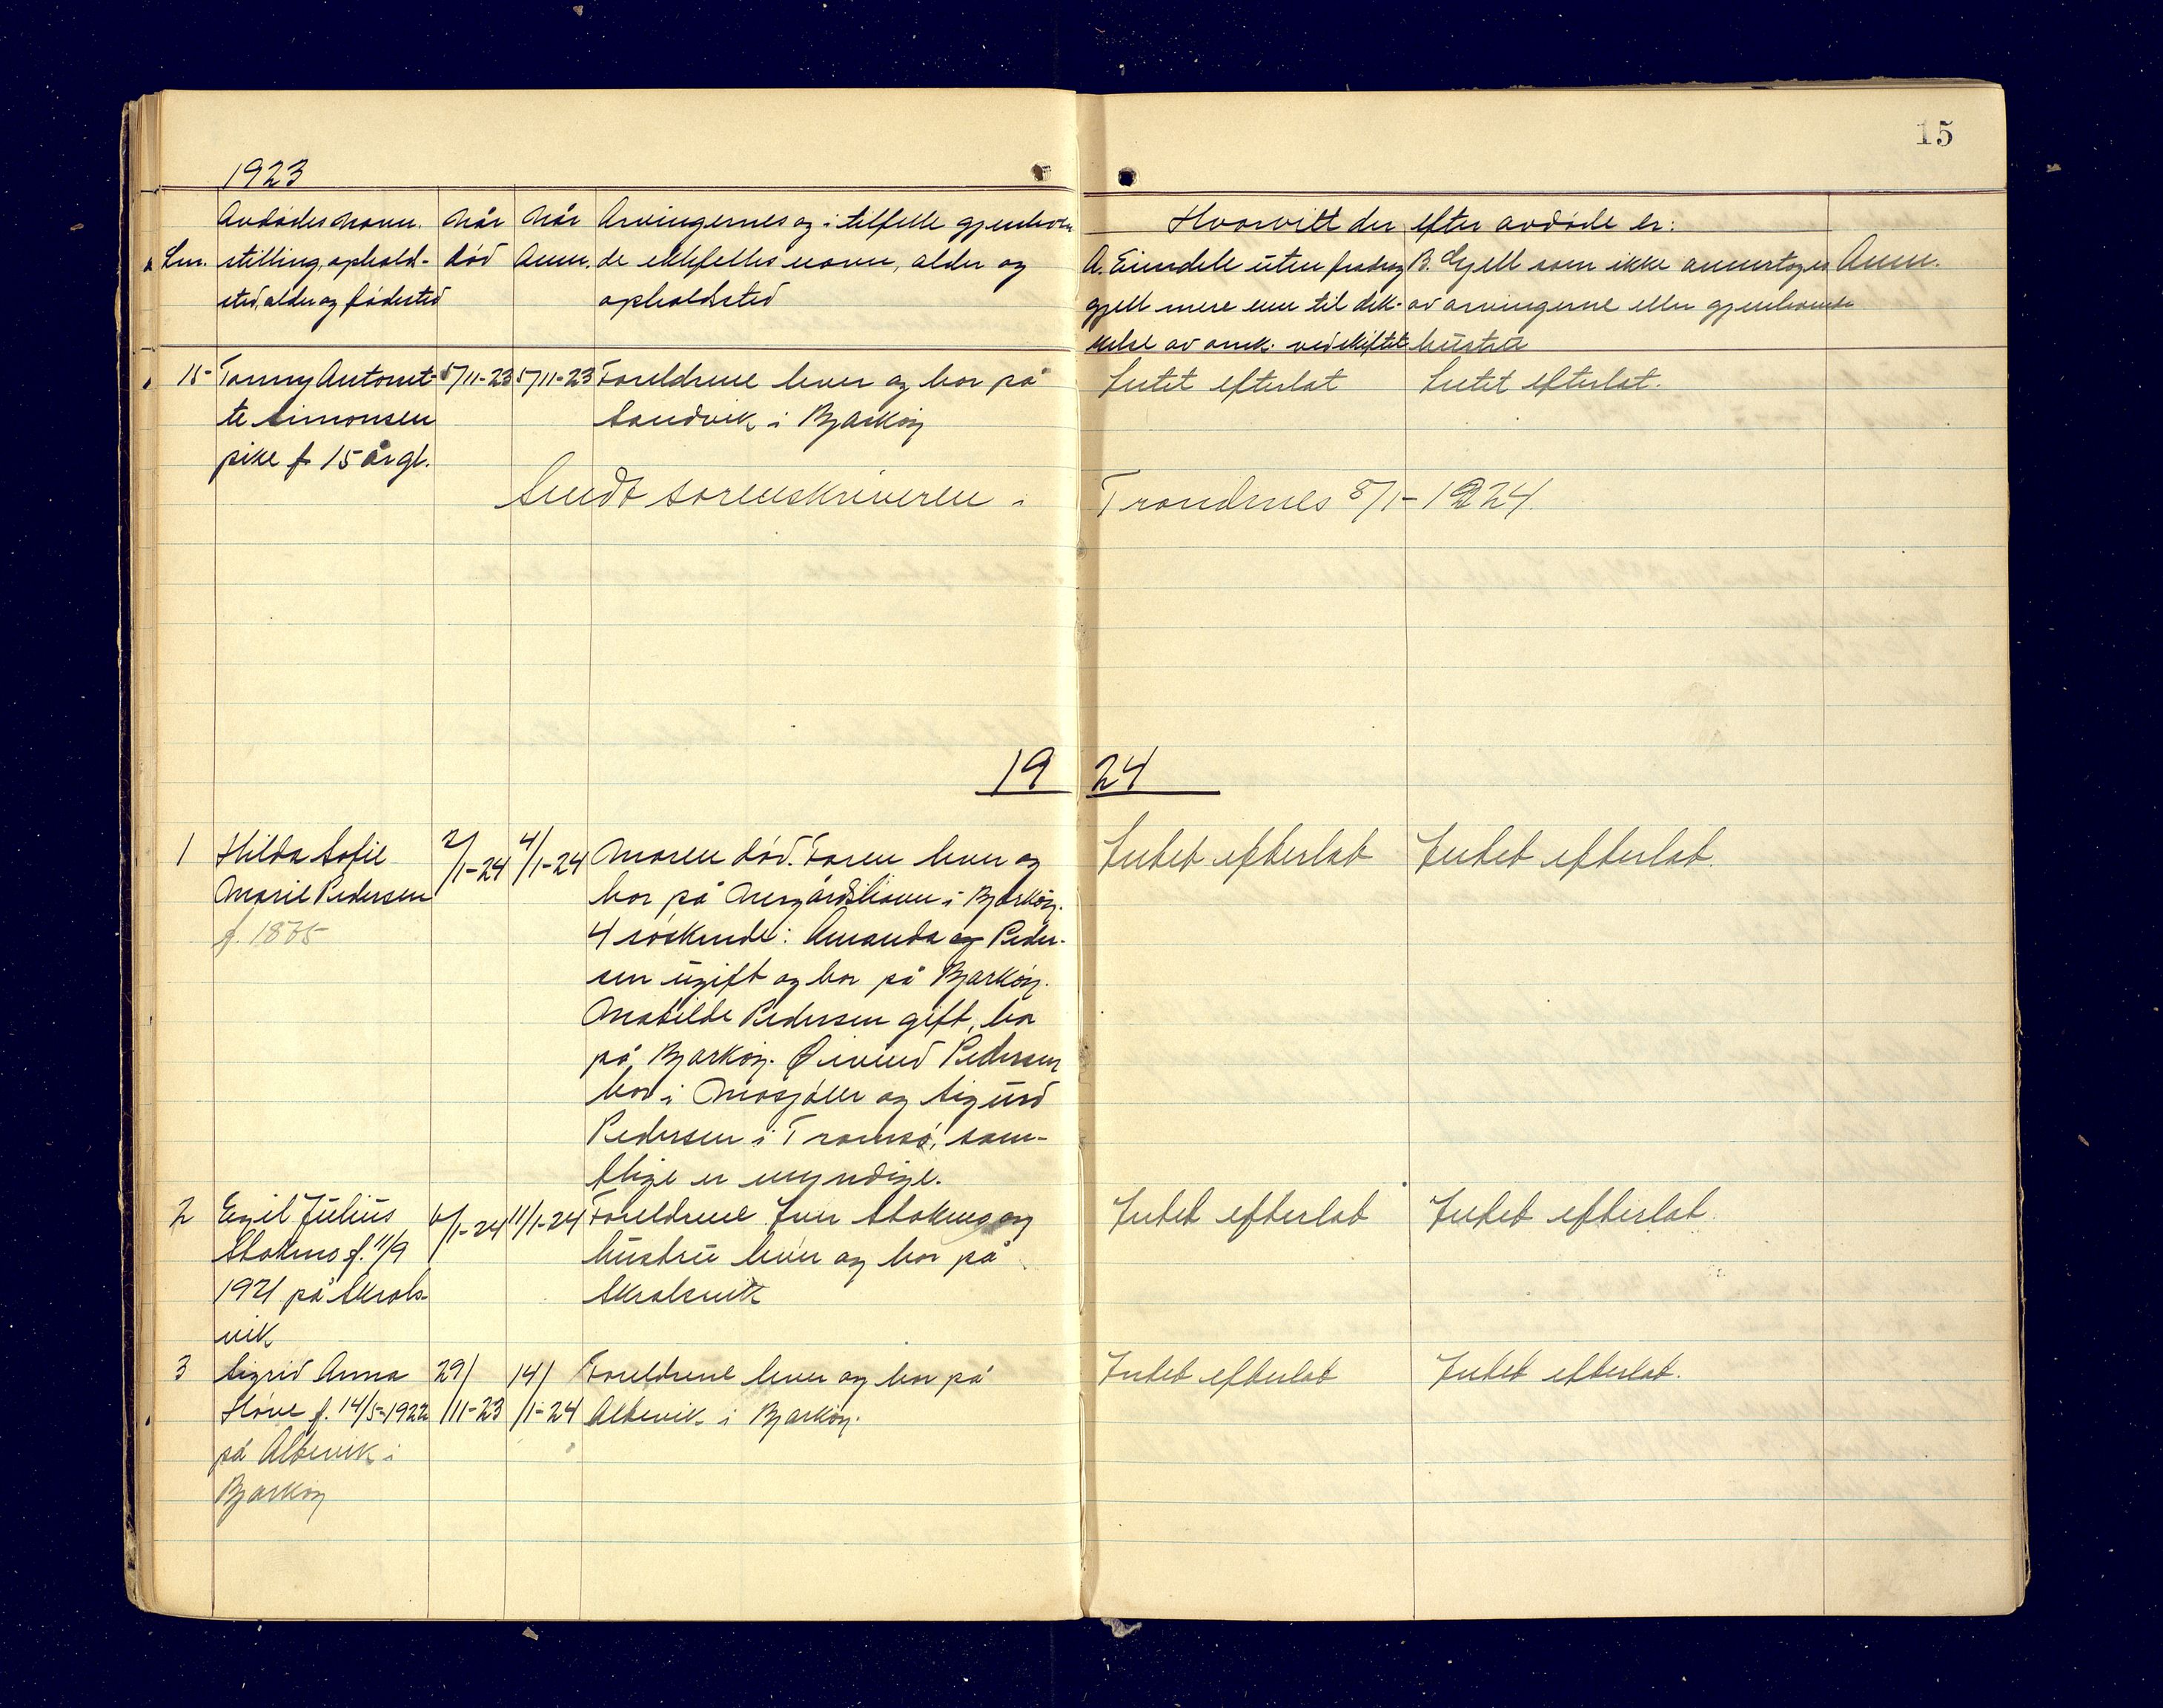 15
1923
Avdødes navn, Når Når Arvingernes og i tilfelle gjenleven Hvorvitt der efter avdøde er:
Lnr. stilling, ophold- død Anm. de ektefelles navn, alder og A. Eiendele uten fradrag B. Gjell som ikke anmertages Anm.
sted, alder og fødested opholdsted gjell mere enn til dek- av arvingerne eller gjenlevende
kelse av omk. ved skiftet hustru
15 Tonny Antonet- 5/11-23 5/11-23 Foreldrene lever og bor på Intet efterlat Intet efterlat.
te Simonsen Sandvik i Bjarkøy
pike f 15 år gl.
Sendt sorenskriveren i Trondenes 5/1-1924.
1924
1 Hilda Sofie 2/1-24 4/1-24 Moren død. Faren lever og Intet efterlat Intet efterlat.
Marie Pedersen bor på Nergårdshavn i Bjarkøy.
f. 18 4 søskende: Amanda og Peder-
sen ugift og bor på Bjarkøy.
Matilde Pedersen gift, bor
på Bjarkøy. Øivind Pedersen
bor i Mosjøen og Sigurd
Pedersen i Tromsø, sam-
tlige er myndige.
2 Egil Julius 6/1-24 11/1-24 Foreldrene Iver Stoknes og Intet efterlat Intet efterlat.
Stoknes f. 11/9 hustru lever og bor på
1921 på Skrols- Skrolsvik
vik
3 Sigrid Anna 29/ 14/ Foreldrene lever og bor på Intet efterlat Intet efterlat.
Høve f. 14/5-1922 /11-23 /1-24 Altevik i Bjarkøy.
på Altevik i
Bjarkøy